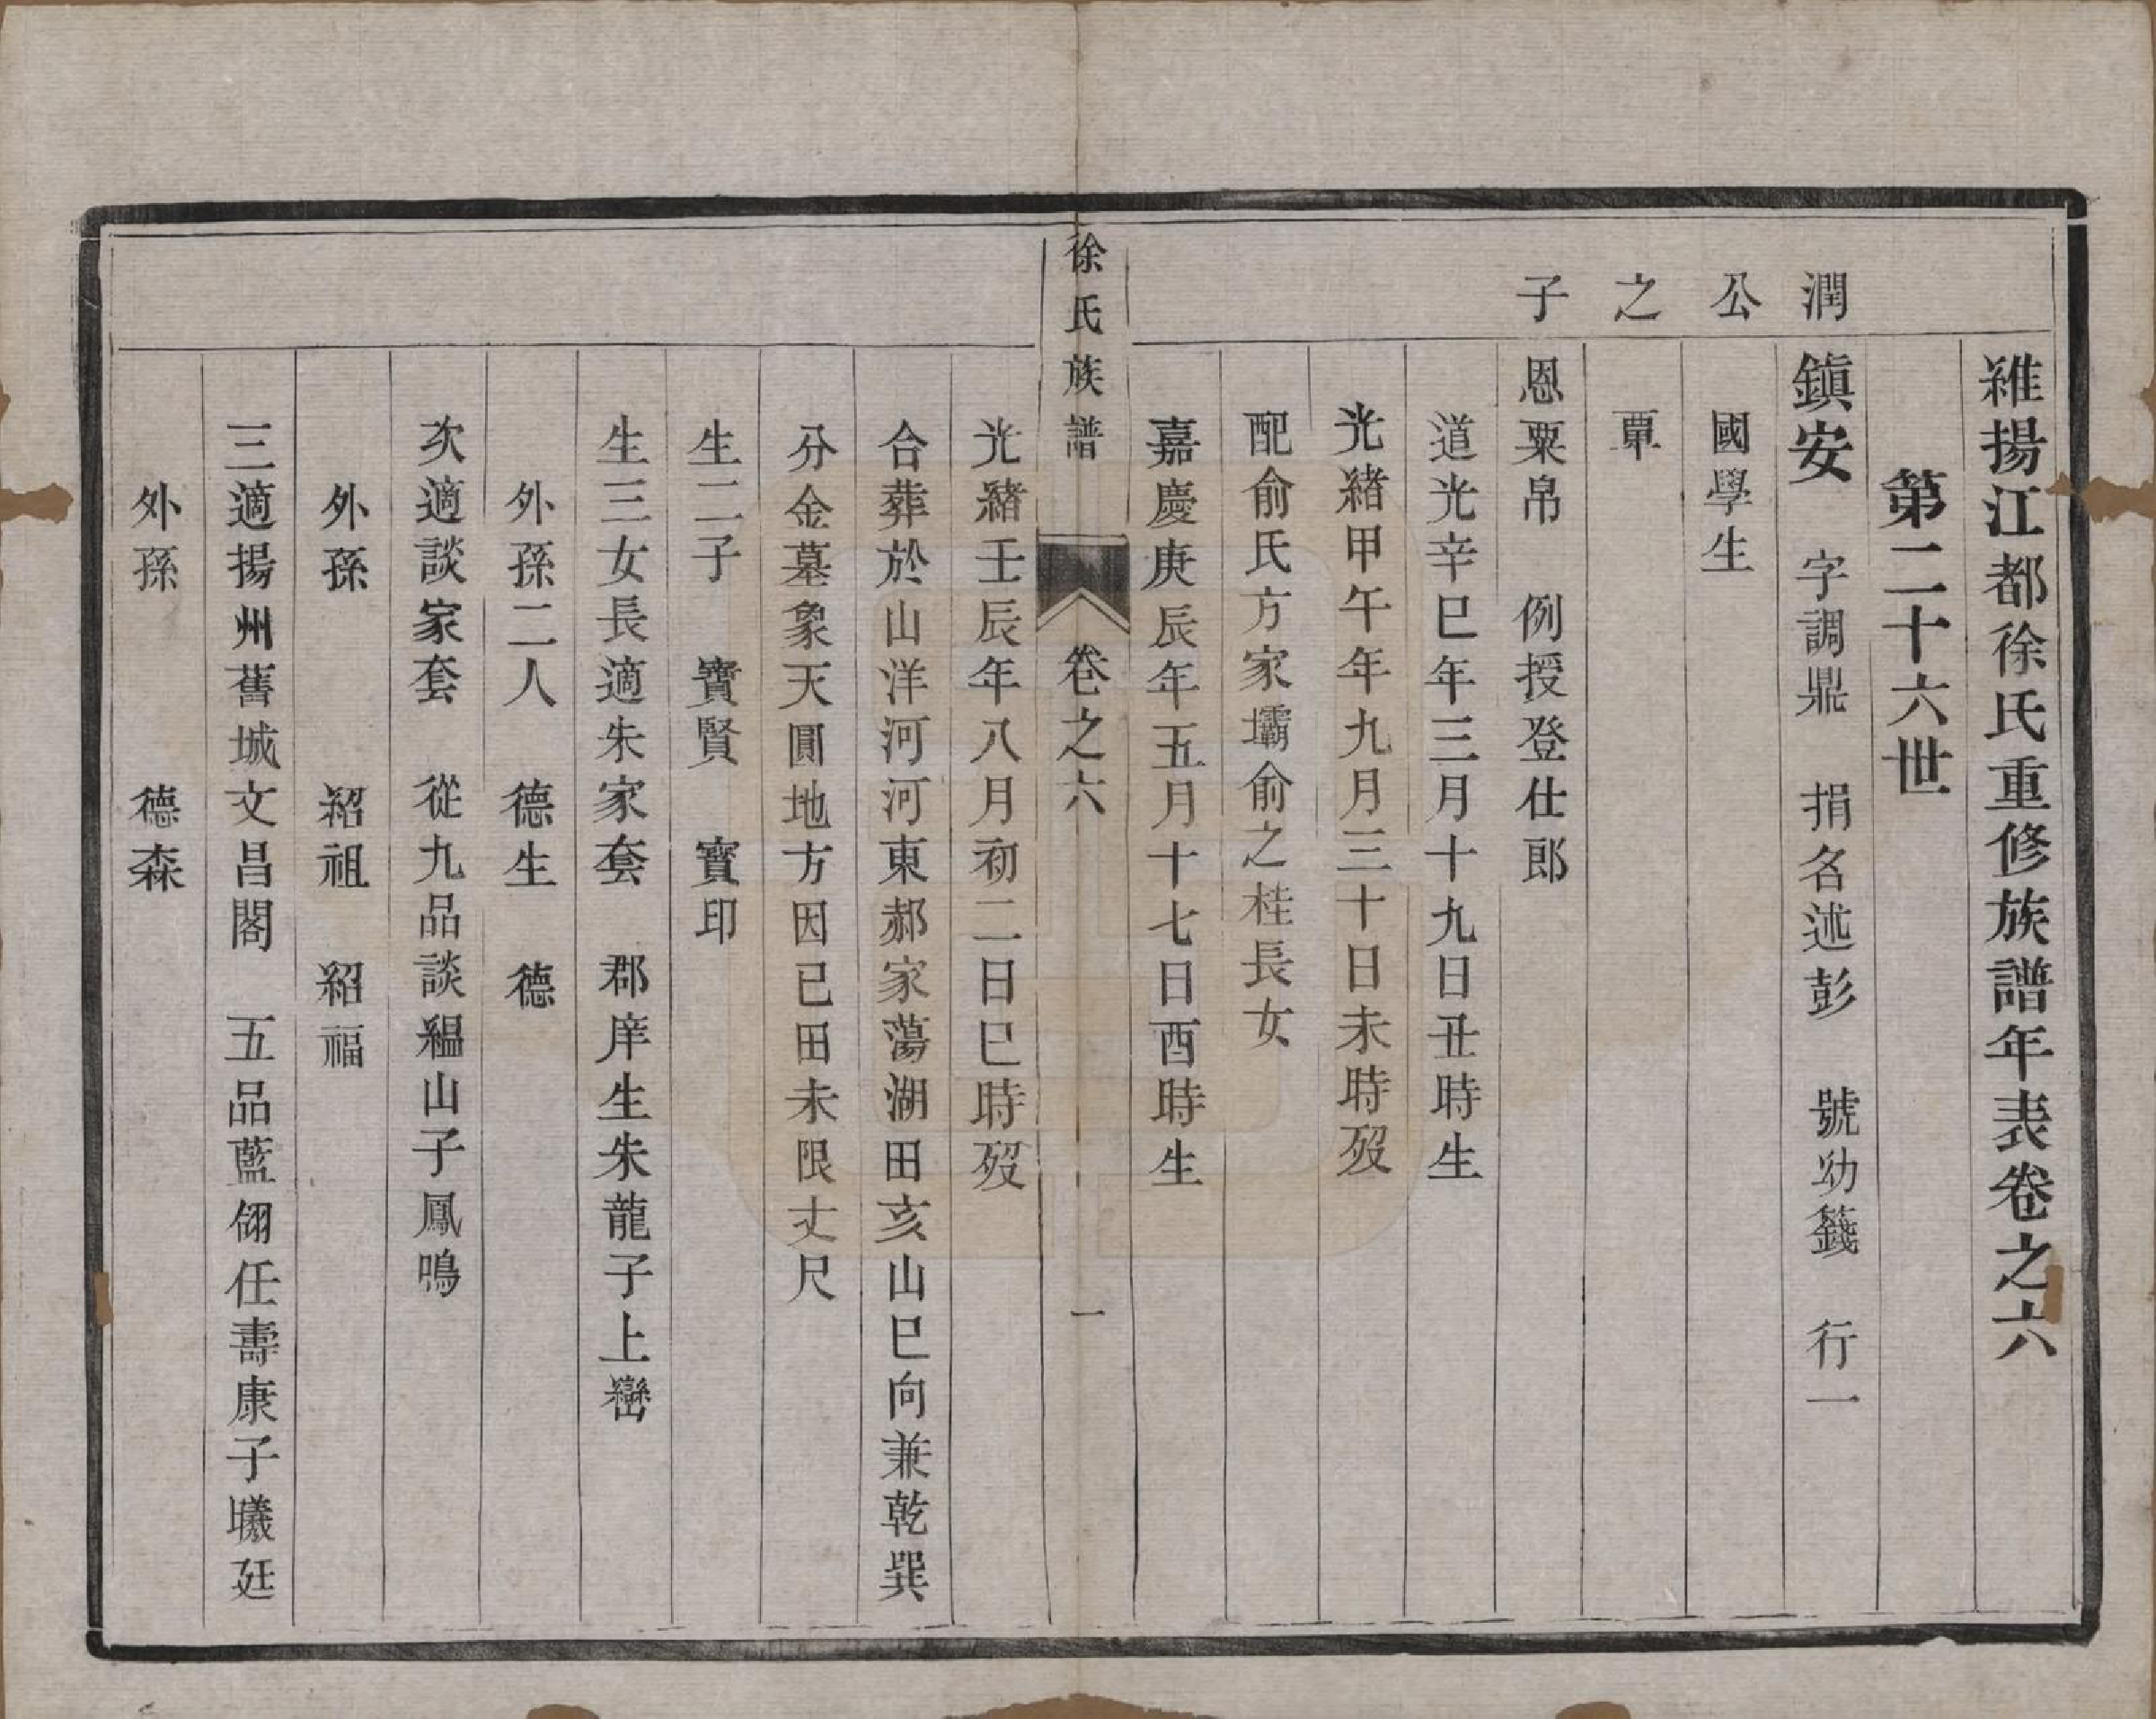 維揚江都徐氏重修族譜年表卷之六
第二十六世
潤公之子
鎮安 字調鼎 捐名述彭 號幼籛 行一
國學生
覃
恩粟帛 例授登仕郎
道光辛巳年三月十九日丑時生
光緒甲午年九月三十日未時歿
配俞氏方家壩俞之桂長女
嘉慶庚辰年五月十七日酉時生
徐氏族譜 卷之六 一
光緒壬辰年八月初二日巳時歿
合葬於山洋河河東郝家蕩湖田亥山巳向兼乾巽
分金墓象天圓地方因已田未限丈尺
生二子 寶賢 寶印
生三女長適朱家套 郡庠生朱龍子上巒
外孫二人 德生 德
次適談家套 從九品談緼山子鳳鳴
外孫 紹祖 紹福
三適揚州舊城文昌閣 五品藍翎任壽康子曦廷
外孫 德森